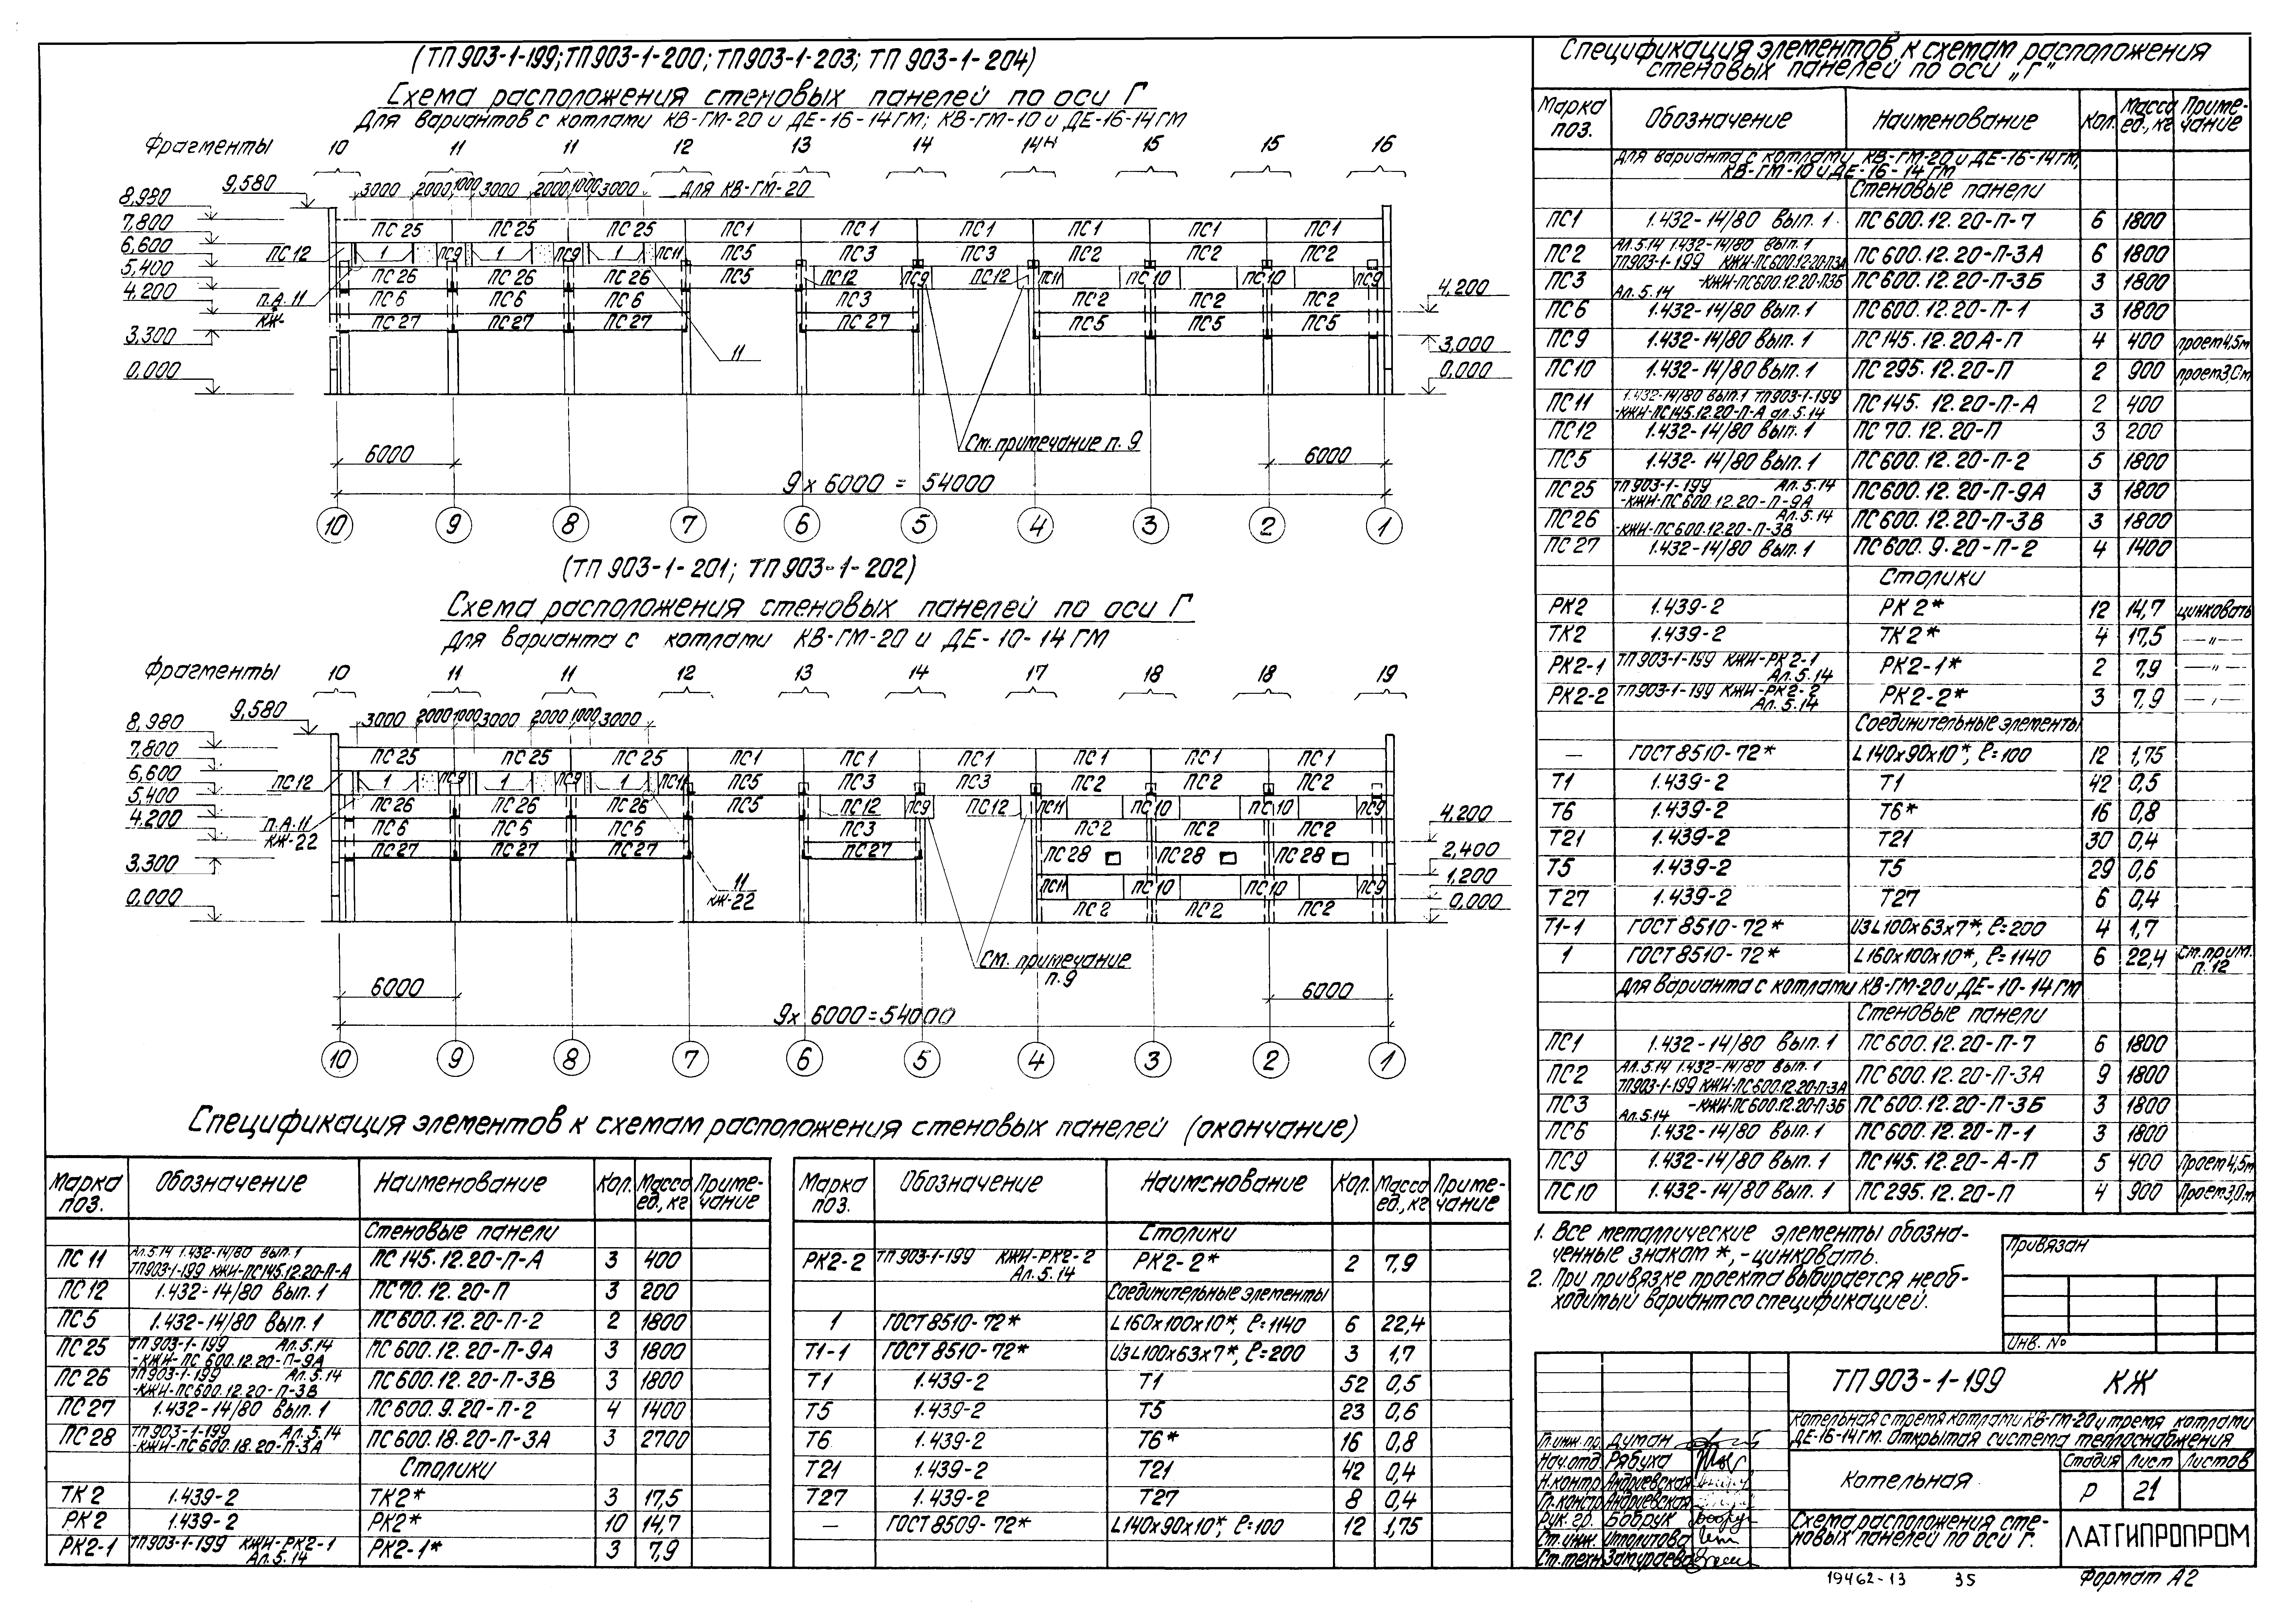 (ТП 903-1-199; ТП 903-1-200; ТП 903-1-203; ТП 903-1-204)
Схема расположения стеновых панелей по оси Г
Для вариантов с котлами КВ-ГМ-20 и ДЕ-16-14ГМ; КВ-ГМ-10 и ДЕ-16-14ГМ
Фрагменты 10 11 11 12 13 14 14н 15 15 16
9,580 3000 2000 1000 3000 2000 1000 3000 для КВ-ГМ-20
8,980
7,800 ПС 25 ПС 25 ПС 25 ПС1 ПС1 ПС1 ПС1 ПС1 ПС1
6,600 ПС 12 1 ПС9 1 ПС9 1 ПС11 ПС5 ПС3 ПС3 ПС2 ПС2 ПС2
5,400 ПС 26 ПС 26 ПС 26 ПС5 ПС12 ПС9 ПС12 ПС11 ПС 10 ПС 10 ПС9
4,200 п.А.11 ПС 6 ПС 6 ПС 6 ПС3 ПС2 ПС2 ПС2 4,200
КЖ- ПС 27 ПС27 ПС27 ПС 27 ПС5 ПС5 ПС5
3,300 11 3,000
0,000 0,000
См. примечание п. 9
6000 6000
9 х 6000 = 54000
10 9 8 7 6 5 4 3 2 1
(ТП 903-1-201; ТП 903-1-202)
Схема расположения стеновых панелей по оси Г
Для варианта с котлами КВ-ГМ-20 и ДЕ-10-14ГМ
Фрагменты 10 11 11 12 13 14 17 18 18 19
9,580 3000 2000 1000 3000 2000 1000 3000
8,980
7,800 ПС 25 ПС 25 ПС 25 ПС1 ПС1 ПС1 ПС1 ПС1 ПС1
6,600 ПС12 1 ПС9 1 ПС9 1 ПС11 ПС5 ПС3 ПС3 ПС2 ПС2 ПС2
5,400 ПС 26 ПС 26 ПС 26 ПС5 ПС12 ПС9 ПС12 ПС11 ПС10 ПС10 ПС9
4,200 п.А.11 ПС6 ПС6 ПС6 ПС3 ПС2 ПС2 ПС2 4,200
КЖ-22 ПС27 ПС27 ПС27 ПС27 ПС28 ПС28 ПС28 2,400
3,300 11 ПС11 ПС 10 ПС 10 ПС9 1,200
0,000 КЖ-22 ПС2 ПС2 ПС2 0,000
См. примечание
п.9
6000 6000
9х 6000=54000
10 9 8 7 6 5 4 3 2 1
Спецификация элементов к схемам расположения стеновых панелей (окончание)
Марка поз. Обозначение Наименование Кол. Масса ед., кг Примечание
Стеновые панели
ПС 11 Ал.5.14 1.432-14/80 вып. 1 ТП903-1-199 КЖИ-ПС145.12.20-П-А ПС 145.12.20-П-А 3 400
ПС12 1.432-14/80 вып. 1 ПС70.12.20-П 3 200
ПС5 1.432-14/80 вып. 1 ПС600.12.20-П-2 2 1800
ПС25 ТП 903-1-199 Ал.5.14 -КЖИ-ПС 600.12.20-П-9А ПС 600.12.20-П-9А 3 1800
ПС 26 ТП903-1-199 Ал.5.14 -КЖИ-ПС600.12.20-П-3В ПС600.12.20-П-3В 3 1800
ПС27 1.432-14/80 вып. 1 ПС600.9.20-П-2 4 1400
ПС28 ТП903-1-199 Ал.5.14 -КЖИ-ПС600.18.20-П-3А ПС600.18.20-П-3А 3 2700
Столики
ТК 2 1.439-2 ТК2* 3 17,5
РК2 1.439-2 РК2* 10 14,7
РК2-1 ТП903-1-199 КЖИ-РК2-1 Ал.5.14 РК2-1* 3 7,9
Марка поз. Обозначение Наименование Кол. Масса ед., кг Примечание
Столики
РК2-2 ТП 903-1-199 КЖИ-РК2-2 Ал.5.14 РК2-2* 2 7,9
Соединительные элементы
1 ГОСТ 8510-72* L160х100х10*, ℓ=1140 6 22,4
Т1-1 ГОСТ 8510-72* ИзL100х63х7*, ℓ=200 3 1,7
Т1 1.439-2 Т1 52 0,5
Т5 1.439-2 Т5 23 0,6
Т6 1.439-2 Т6* 16 0,8
Т21 1.439-2 Т21 42 0,4
Т27 1.439-2 Т27 8 0,4
— ГОСТ 8509-72* L140х90х10*, ℓ=100 12 1,75
Спецификация элементов к схемам расположения
стеновых панелей по оси „Г"
Марка поз. Обозначение Наименование Кол. Масса ед., кг Примечание
Для варианта с котлами КВ-ГМ-20 и ДЕ-16-14ГМ,
КВ-ГМ-10 и ДЕ-16-14ГМ
Стеновые панели
ПС1 1.432-14/80 вып. 1 ПС 600.12.20-П-7 6 1800
ПС2 Ал.5.14 1.432-14/80 вып. 1 ТП903-1-199 КЖИ-ПС600.12.20-П-3А ПС600.12.20-П-3А 6 1800
ПС3 Ал.5.14 -КЖИ-ПС600.12.20-П3Б ПС600.12.20-П-3Б 3 1800
ПС6 1.432-14/80 вып. 1 ПС600.12.20-П-1 3 1800
ПС9 1.432-14/80 вып. 1 ПС145.12.20А-П 4 400 проем4,5м
ПС10 1.432-14/80 вып. 1 ПС295.12.20-П 2 900 проем3,0м
ПС11 1.432-14/80 вып.1 ТП903-1-199 -КЖИ-ПС145.12.20-П-А ал.5.14 ПС145.12.20-П-А 2 400
ПС12 1.432-14/80 вып. 1 ПС 70.12.20-П 3 200
ПС5 1.432-14/80 вып. 1 ПС600.12.20-П-2 5 1800
ПС25 ТП903-1-199 Ал.5.14 -КЖИ-ПС600.12.20-П-9А ПС600.12.20-П-9А 3 1800
ПС26 Ал.5.14 -КЖИ-ПС600.12.20-П-3В ПС600.12.20-П-3В 3 1800
ПС27 1.432-14/80 вып. 1 ПС600.9.20-П-2 4 1400
Столики
РК2 1.439-2 РК2* 12 14,7 цинковать
ТК2 1.439-2 ТК2* 4 17,5 —„—
РК2-1 ТП903-1-199 КЖИ-РК2-1 Ал.5.14 РК2-1* 2 7,9 —„—
РК2-2 ТП903-1-199 КЖИ-РК2-2 Ал.5.14 РК2-2* 3 7,9 —„—
Соединительные элементы
— ГОСТ 8510-72* L140х90х10*, ℓ=100 12 1,75
Т1 1.439-2 Т1 42 0,5
Т6 1.439-2 Т6* 16 0,8
Т21 1.439-2 Т21 30 0,4
Т5 1.439-2 Т5 29 0,6
Т27 1.439-2 Т27 6 0,4
Т1-1 ГОСТ 8510-72* ИзL100х63х7*, ℓ=200 4 1,7
1 ГОСТ 8510-72* L160х100х10*, ℓ=1140 6 22,4 См.прим. п. 12
Для варианта с котлами КВ-ГМ-20 и ДЕ-10-14ГМ
Стеновые панели
ПС1 1.432-14/80 вып. 1 ПС600.12.20-П-7 6 1800
ПС2 Ал.5.14 1.432-14/80 вып. 1 ТП903-1-199 КЖИ-ПС600.12.20-П-3А ПС600.12.20-П-3А 9 1800
ПС3 Ал.5.14 -КЖИ-ПС600.12.20-П-3Б ПС600.12.20-П-3Б 3 1800
ПС6 1.432-14/80 вып. 1 ПС600.12.20-П-1 3 1800
ПС9 1.432-14/80 вып. 1 ПС145.12.20-А-П 5 400 Проем4,5м
ПС10 1.432-14/80 вып. 1 ПС295.12.20-П 4 900 Проем3,0м
1. Все металлические элементы обозна-
ченные знаком *, - цинковать.
2. При привязке проекта выбирается необ-
ходимый вариант со спецификацией.
Привязан
Инв. №
ТП 903-1-199 КЖ
Котельная с тремя котлами КВ-ГМ-20 и тремя котлами
ДЕ-16-14ГМ. Открытая система теплоснабжения
Гл.инж.пр. Думан
Нач.отд. Рябуха
Н.контр. Андриевская
Гл.констр. Андриевская
Рук. гр. Бобрук
Ст.инж. Иполитова
Ст.техн. Замураева
Котельная
Стадия Лист Листов
Р 21
Схема расположения сте-
новых панелей по оси Г.
ЛАТГИПРОПРОМ
19462-13 35
Формат А2